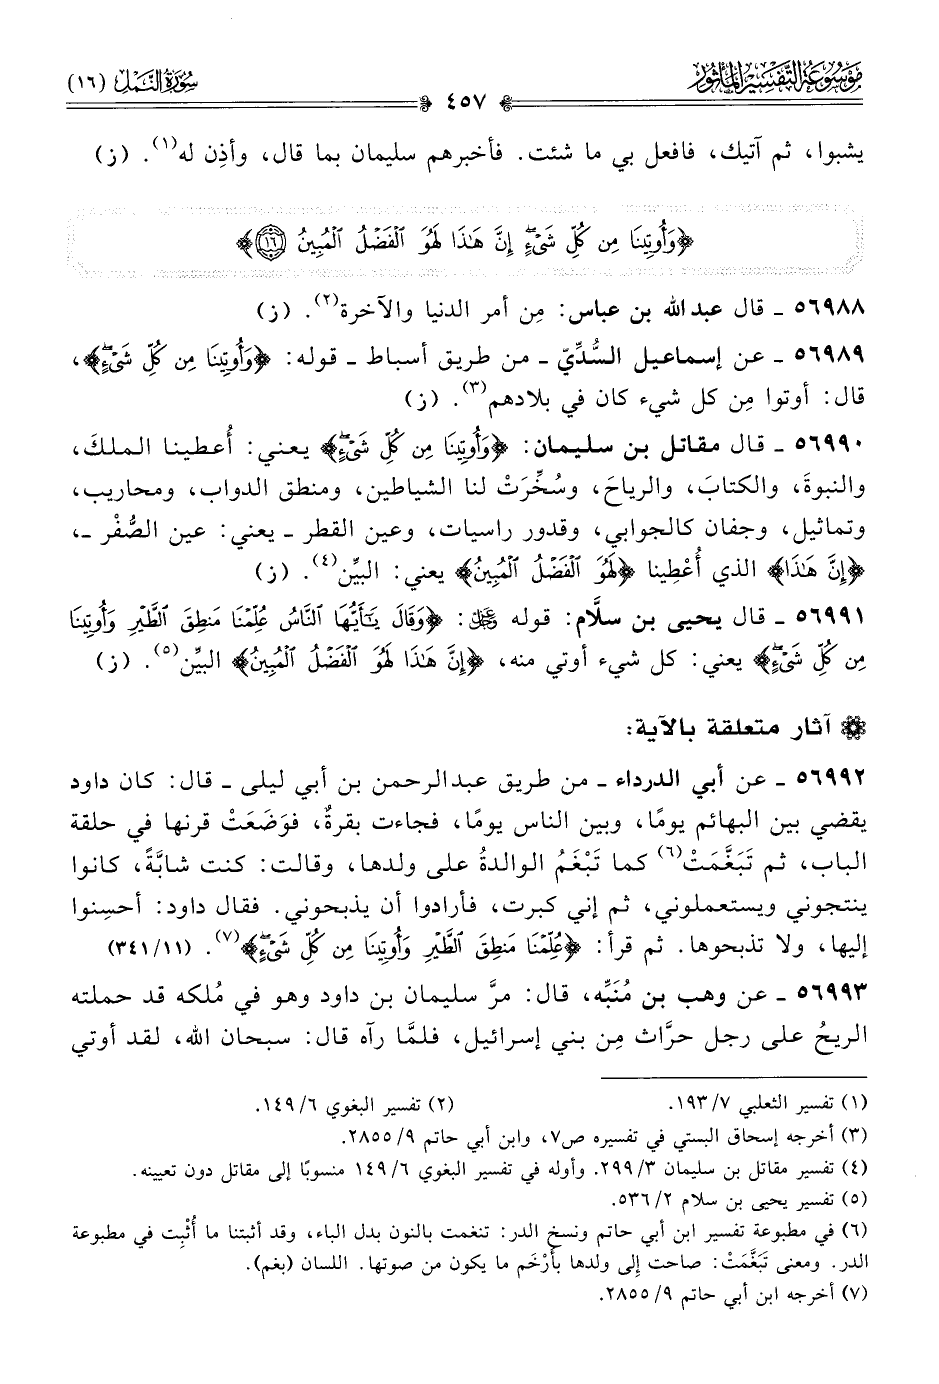 موسوعة التفسير المأثور
سورة النمل (١٦)
٤٥٧
يشبوا، ثم آتيك، فافعل بي ما شئت. فأخبرهم سليمان بما قال، وأذِن له(١). (ز)
﴿وَأُوتِينَا مِن كُلِّ شَيْءٍ إِنَّ هَٰذَا لَهُوَ ٱلْفَضْلُ ٱلْمُبِينُ ١٦﴾
٥٦٩٨٨ ـ قال عبد الله بن عباس: مِن أمر الدنيا والآخرة(٢). (ز)
٥٦٩٨٩ ـ عن إسماعيل السُّدِّيّ ـ من طريق أسباط ـ قوله: ﴿وَأُوتِينَا مِن كُلِّ شَيْءٍ﴾،
قال: أوتوا مِن كل شيء كان في بلادهم(٣). (ز)
٥٦٩٩٠ ـ قال مقاتل بن سليمان: ﴿وَأُوتِينَا مِن كُلِّ شَيْءٍ﴾ يعني: أُعطينا الملكَ،
والنبوةَ، والكتابَ، والرياحَ، وسُخِّرَتْ لنا الشياطين، ومنطق الدواب، ومحاريب،
وتماثيل، وجفان كالجوابي، وقدور راسيات، وعين القطر ـ يعني: عين الصُّفْر ـ،
﴿إِنَّ هَٰذَا﴾ الذي أُعْطِينا ﴿لَهُوَ ٱلْفَضْلُ ٱلْمُبِينُ﴾ يعني: البيِّن(٤). (ز)
٥٦٩٩١ ـ قال يحيى بن سلَّام: قوله ﷿: ﴿وَقَالَ يَٰٓأَيُّهَا ٱلنَّاسُ عُلِّمْنَا مَنطِقَ ٱلطَّيْرِ وَأُوتِينَا
مِن كُلِّ شَيْءٍ﴾ يعني: كل شيء أوتي منه، ﴿إِنَّ هَٰذَا لَهُوَ ٱلْفَضْلُ ٱلْمُبِينُ﴾ البيِّن(٥). (ز)
آثار متعلقة بالآية:
٥٦٩٩٢ ـ عن أبي الدرداء ـ من طريق عبد الرحمن بن أبي ليلى ـ قال: كان داود
يقضي بين البهائم يومًا، وبين الناس يومًا، فجاءت بقرةٌ، فوَضَعَتْ قرنها في حلقة
الباب، ثم تَبَغَّمَتْ(٦) كما تَبْغَمُ الوالدةُ على ولدها، وقالت: كنت شابَّةً، كانوا
ينتجوني ويستعملوني، ثم إني كبرت، فأرادوا أن يذبحوني. فقال داود: أحسِنوا
إليها، ولا تذبحوها. ثم قرأ: ﴿عُلِّمْنَا مَنطِقَ ٱلطَّيْرِ وَأُوتِينَا مِن كُلِّ شَيْءٍ﴾(٧). (٣٤١/١١)
٥٦٩٩٣ ـ عن وهب بن مُنَبِّه، قال: مرَّ سليمان بن داود وهو في مُلكه قد حملته
الريحُ على رجل حرَّاث مِن بني إسرائيل، فلمَّا رآه قال: سبحان الله، لقد أوتي
(١) تفسير الثعلبي ٧/ ١٩٣. (٢) تفسير البغوي ٦/ ١٤٩.
(٣) أخرجه إسحاق البستي في تفسيره ص٧، وابن أبي حاتم ٩/ ٢٨٥٥.
(٤) تفسير مقاتل بن سليمان ٣/ ٢٩٩. وأوله في تفسير البغوي ٦/ ١٤٩ منسوبًا إلى مقاتل دون تعيينه.
(٥) تفسير يحيى بن سلام ٢/ ٥٣٦.
(٦) في مطبوعة تفسير ابن أبي حاتم ونسخ الدر: تنغمت بالنون بدل الباء، وقد أثبتنا ما أُثْبِت في مطبوعة
الدر. ومعنى تَبَغَّمَتْ: صاحت إلى ولدها بأَرْخَم ما يكون من صوتها. اللسان (بغم).
(٧) أخرجه ابن أبي حاتم ٩/ ٢٨٥٥.